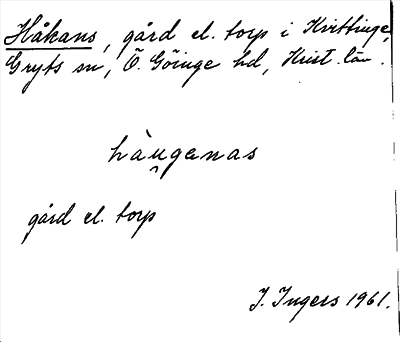 Håkans, gård el. torp i Hvittinge,
Gryts sn, Ö. Göinge hd, Krist. län.
hàu̯genas
gård el. torp
J. Ingers 1961.